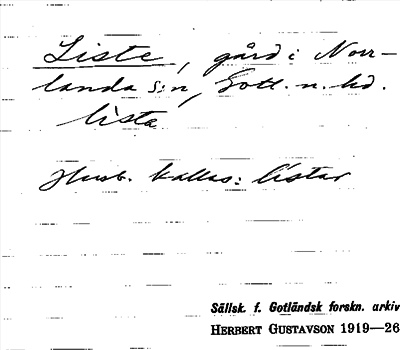 Liste, gård i Norr-
landa s:n, Gotl. n. hd.
lista
Husb. kallas: listar
Sällsk. f. Gotländsk forskn. arkiv
HERBERT GUSTAVSON 1919—26